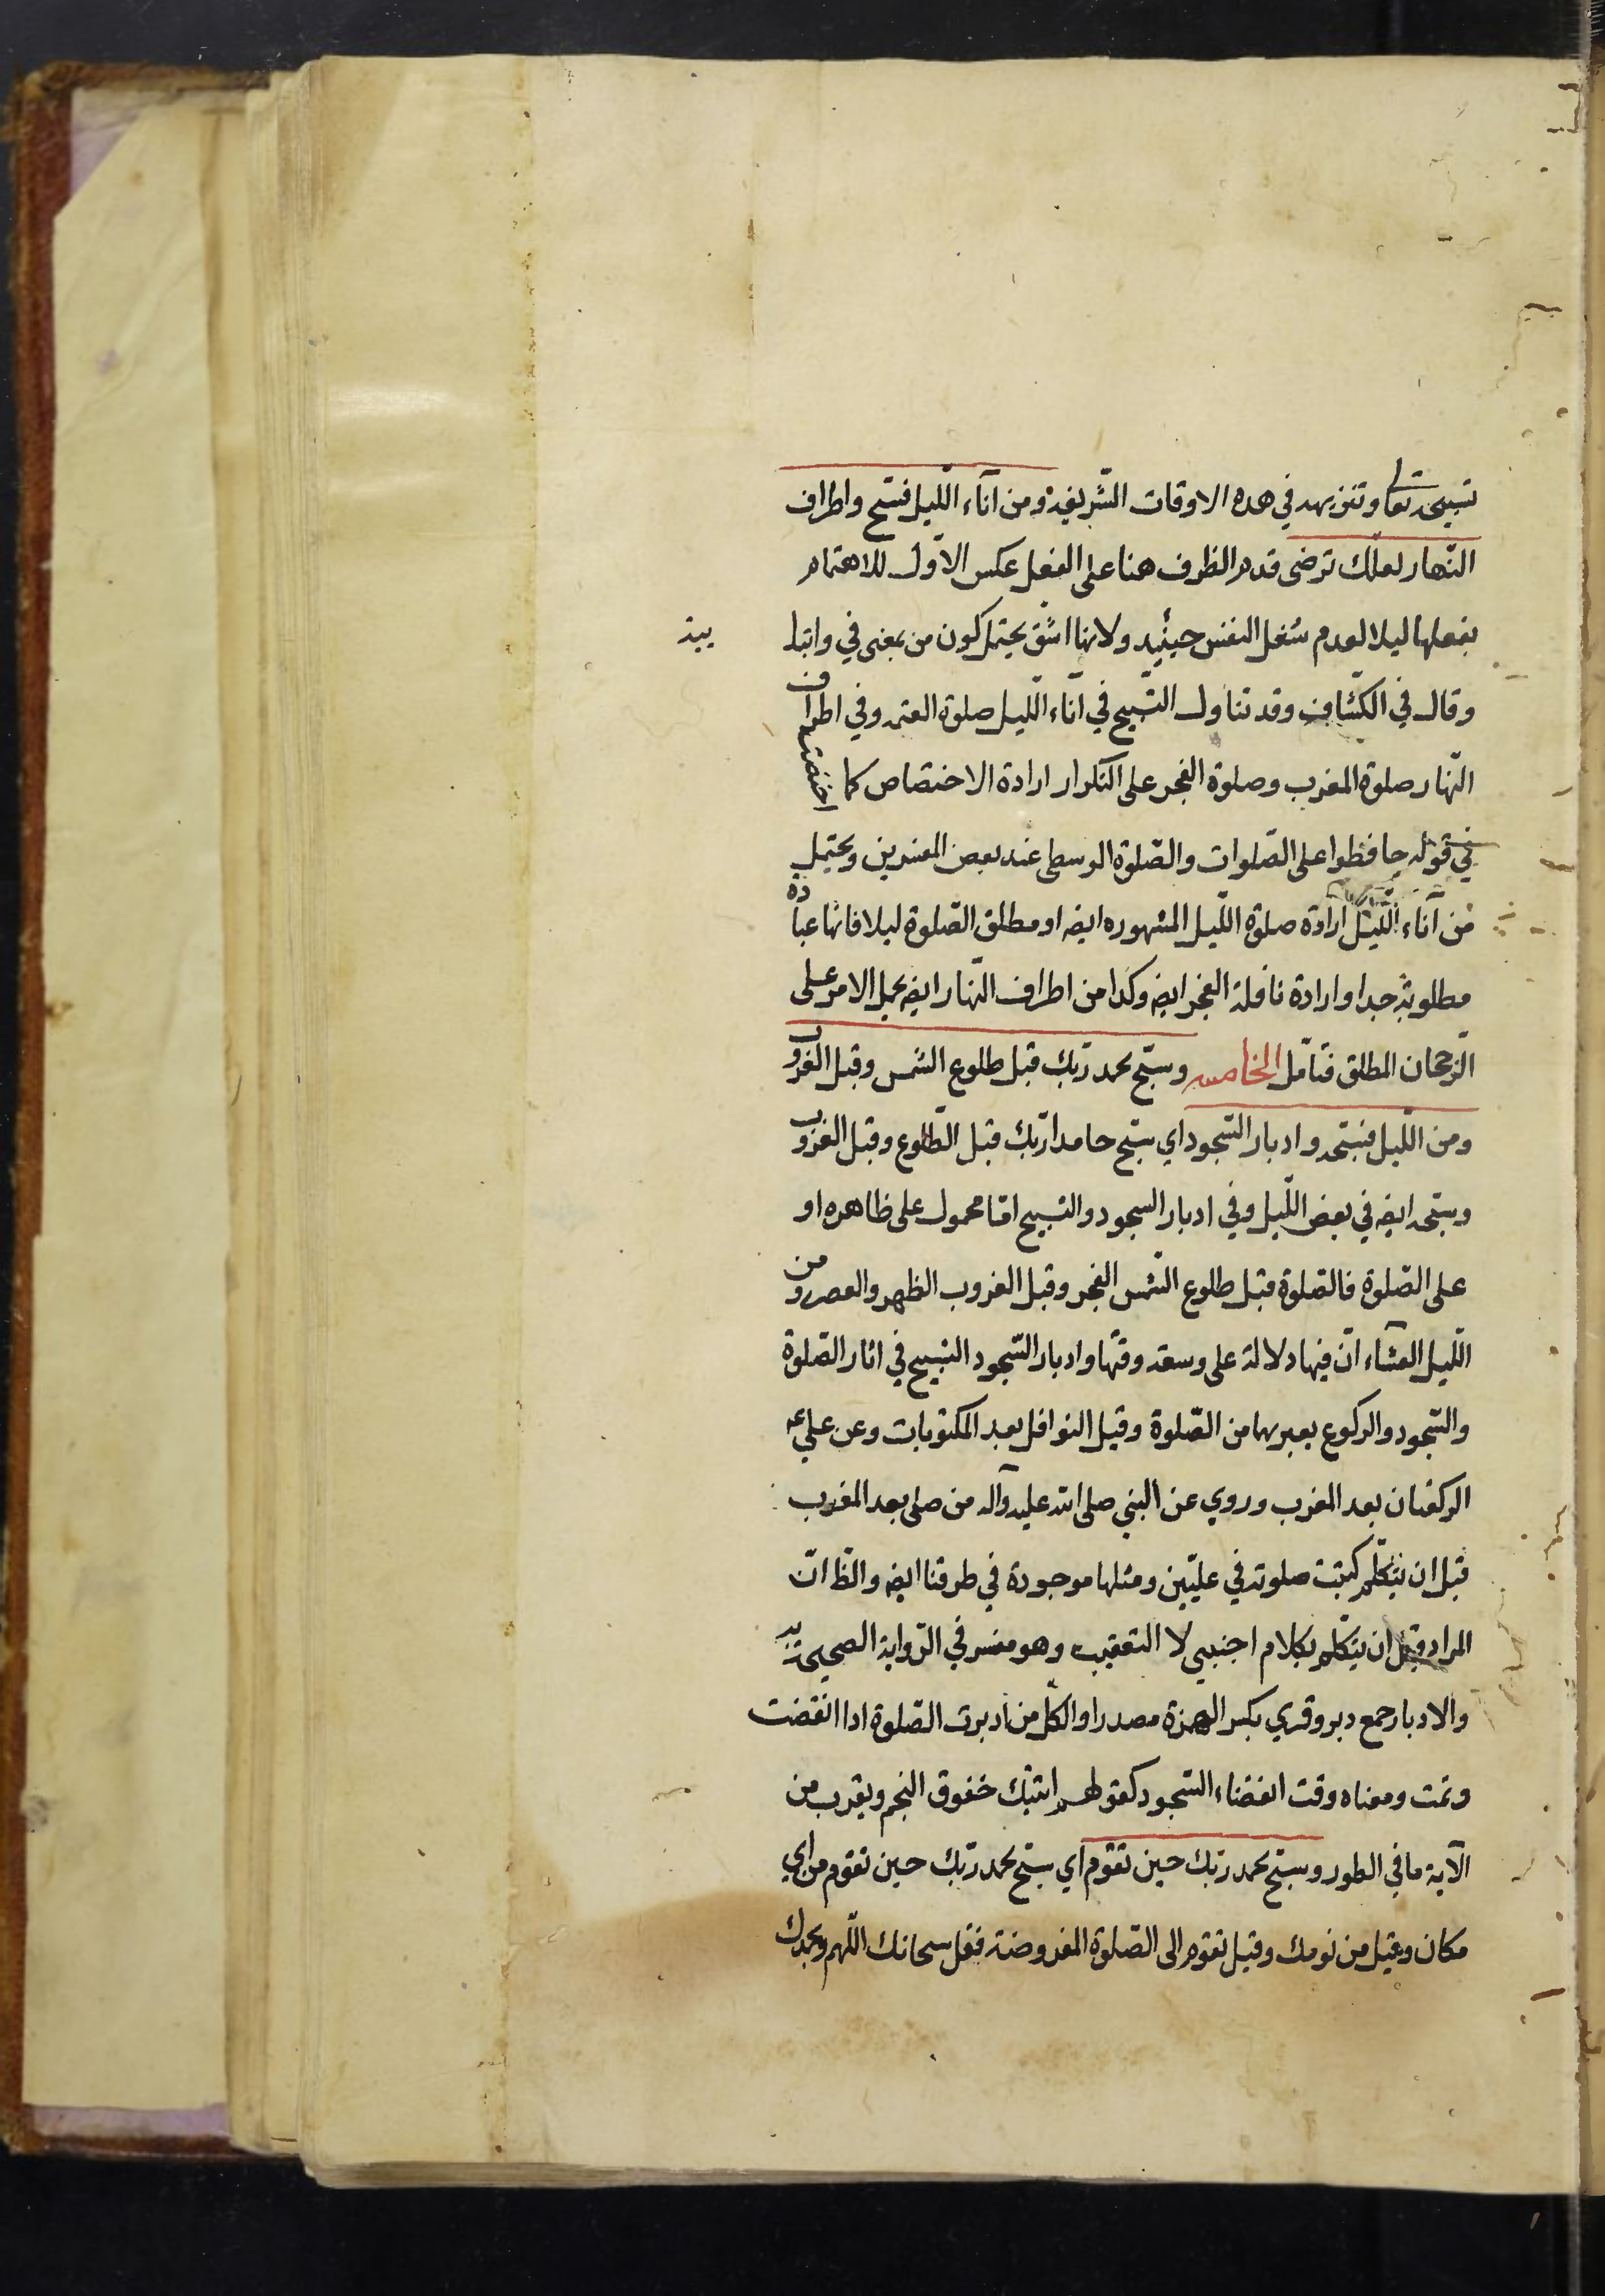 تسبيحه تعا وتنزيهه في هذه الاوقات الشريفة ومن آناء اللّيل فسبّح واطراف
النّهار لعلّك ترضى قدم الظرف هنا على الفعل عكس الاوّل للاهتمام
بفعلها ليلا لعدم شغل النفس حينئيذ ولانها اشقّ يحتمل كون من بمعنى في وابتدا
ئية
وقال في الكشّاف وقد تناول التّسبيح في آناء اللّيل صلوة العتمة وفي اطراف
النّهار صلوة المغرب وصلوة الفجر على التكرار ارادة الاختصاص كما اختصت
في قوله حافظوا على الصّلوات والصّلوة الوسطى عند بعض المفسرين ويحتمل
من آناء اللّيل ارادة صلوة اللّيل المشهوره ايضه او مطلق الصّلوة ليلا فانّها عبادة
مطلوبة جدا وارادة نافلة الفجر ايضه وكذا من اطراف النّهار ايضه بحمل الامر على
الرّجحان المطلق فتامّل الخامسه وسبّح بحمد ربّك قبل طلوع الشمس وقبل الغروب
ومن اللّيل فسبّحه وادبار السّجود اي سبّح حامدا ربّك قبل الطّلوع وقبل الغروب
وسبّحه ايضه في بعض اللّيل وفي ادبار السجود والتسبيح امّا محمول على ظاهره او
على الصّلوة فالصّلوة قبل طلوع الشّمس الفجر وقبل الغروب الظهر والعصر ومن
اللّيل العشاء انّ فيها دلالة على وسعة وقتها وادبار السّجود التسبيح في اثار الصّلوة
والسّجود والركوع يعبر بهما من الصّلوة وقيل النوافل بعد المكتوبات وعن علي ع
الركعتان بعد المغرب وروي عن النبي صلى الله عليه وآله من صلى بعد المغرب
قبل ان يتكلّم كتبت صلوته في علّيين ومثلها موجودة في طرقنا ايضه والظّ انّ
المراد قبل ان يتكلم بكلام اجنبي لا التعقيب وهو مفسر في الرّواية الصحيحة
والادبار جمع دبر وقري بكسر الهمزة مصدرا والكلّ من ادبرت الصّلوة اذا انقضت
وتمت ومعناه وقت انقضاء السّجود كقولهم اتيتك خفوق النجم ويقرب من
الآية ما في الطور وسبّح بحمد ربّك حين تقوم اي سبّح بحمد ربّك حين تقوم من اي
مكان وقيل من نومك وقيل تقوم الى الصّلوة المفروضة فقل سبحانك اللّهم وبحمدك